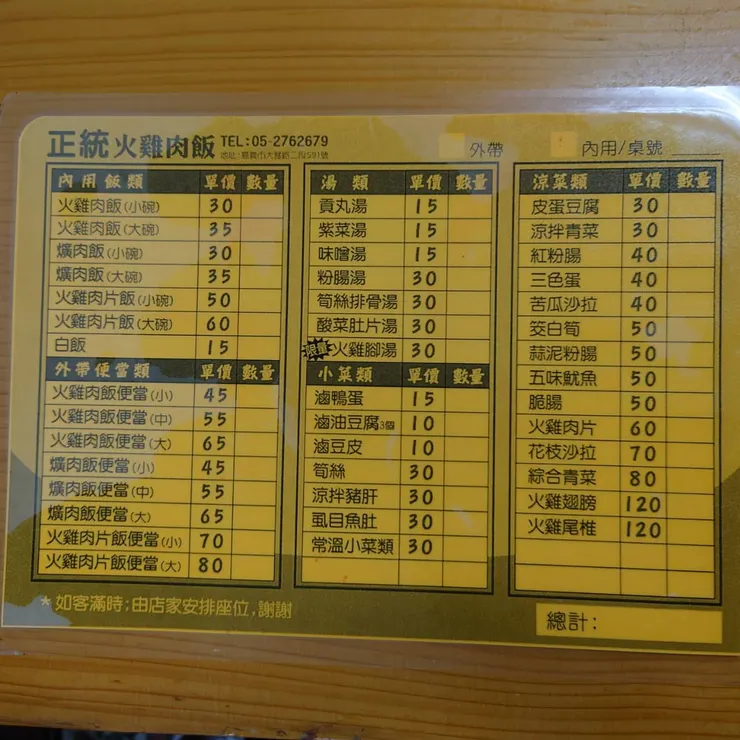 正統火雞肉飯 TEL:05-2762679
外帶
內用/桌號
內用飯類 單價 數量
火雞肉飯(小碗) 30
火雞肉飯(大碗) 35
爌肉飯(小碗) 30
爌肉飯(大碗) 35
火雞肉片飯(小碗) 50
火雞肉片飯(大碗) 60
白飯 15
外帶便當類 單價 數量
火雞肉飯便當(小) 45
火雞肉飯便當(中) 55
火雞肉飯便當(大) 65
爌肉飯便當(小) 45
爌肉飯便當(中) 55
爌肉飯便當(大) 65
火雞肉片飯便當(小) 70
火雞肉片飯便當(大) 80
湯類 單價 數量
貢丸湯 15
紫菜湯 15
味噌湯 15
粉腸湯 30
筍絲排骨湯 30
酸菜肚片湯 30
火雞腳湯 30
小菜類 單價 數量
滷鴨蛋 15
滷油豆腐3個 10
滷豆皮 10
筍絲 30
涼拌豬肝 30
虱目魚肚 30
常溫小菜類 30
涼菜類 單價 數量
皮蛋豆腐 30
涼拌青菜 30
紅粉腸 40
三色蛋 40
苦瓜沙拉 40
筊白筍 50
蒜泥粉腸 50
五味魷魚 50
脆腸 50
火雞肉片 60
花枝沙拉 70
綜合青菜 80
火雞翅膀 120
火雞尾椎 120
*如客滿時;由店家安排座位,謝謝
總計: